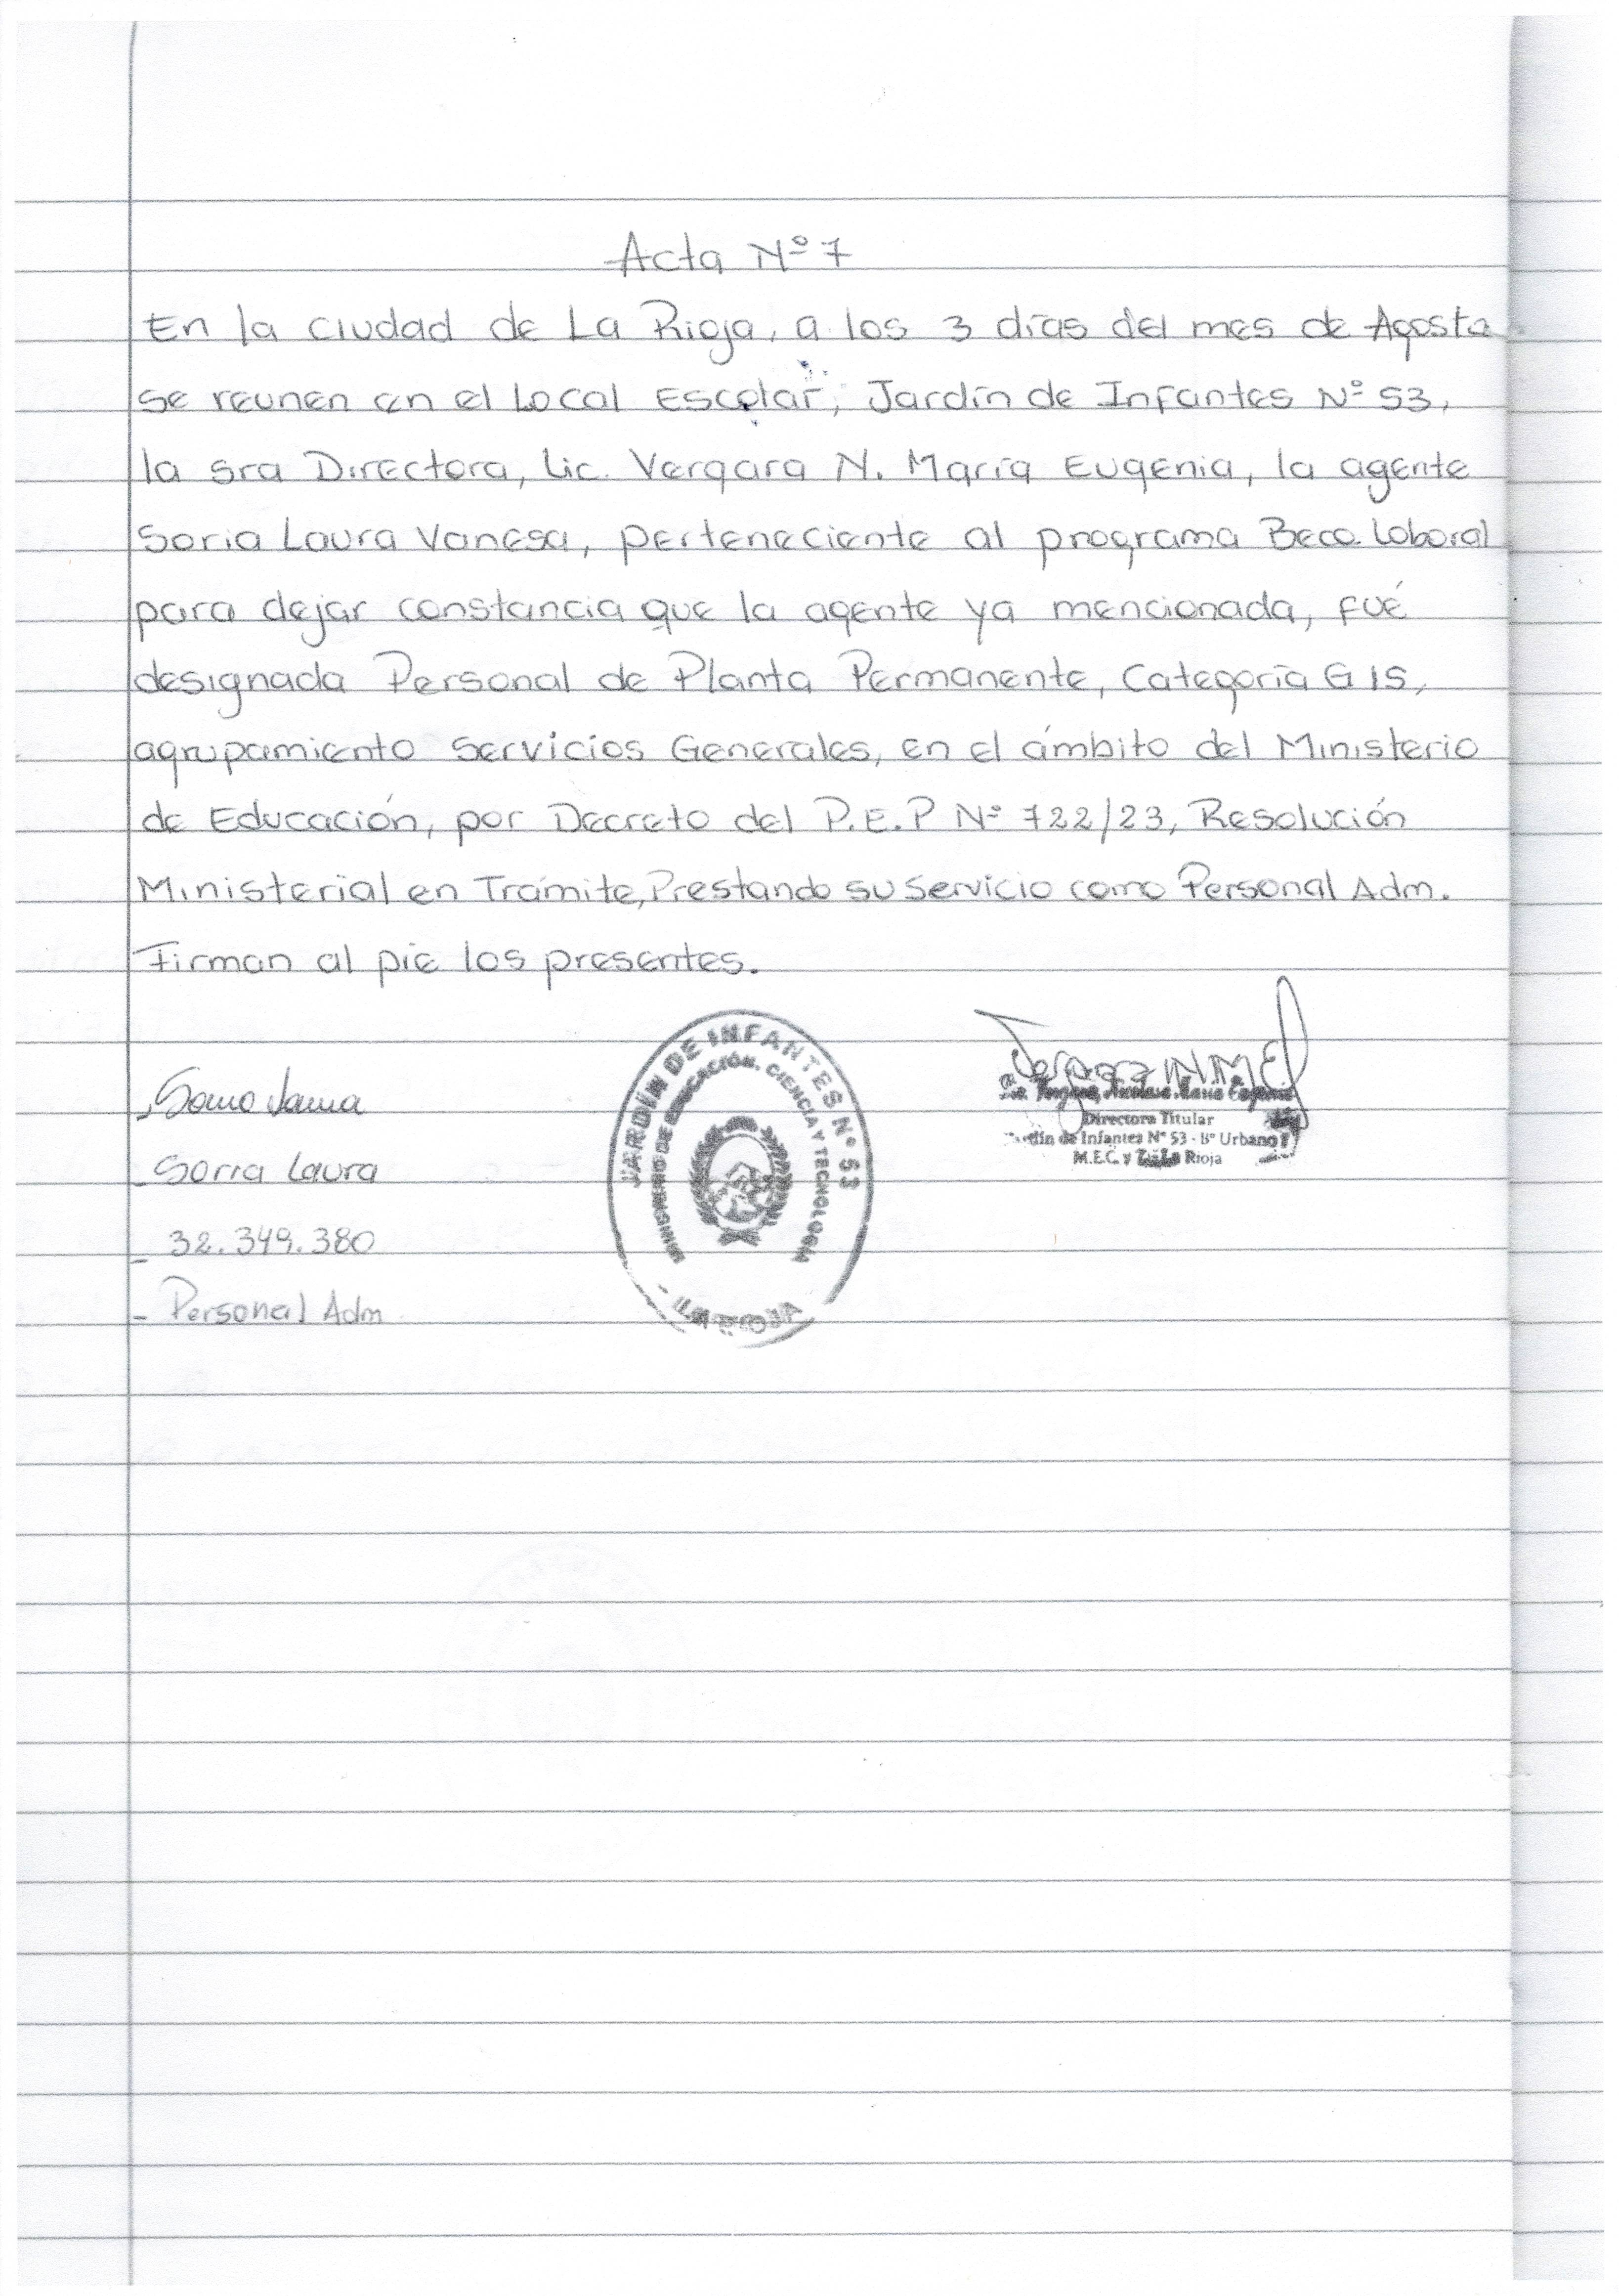 Acta Nº 7
En la ciudad de La Rioja, a los 3 días del mes de Agosto
se reunen en el Local Escolar, Jardín de Infantes Nº 53,
la sra Directora, Lic. Vergara N. María Eugenia, la agente
Soria Laura Vanesa, perteneciente al programa Beca Laboral
para dejar constancia que la agente ya mencionada, fué
designada Personal de Planta Permanente, Categoría G 15,
agrupamiento Servicios Generales, en el ámbito del Ministerio
de Educación, por Decreto del P.E.P Nº 722/23, Resolución
Ministerial en Trámite, Prestando su Servicio como Personal Adm.
Firman al pie los presentes.
Soria Laura
- Soria Laura
- 32.349.380
- Personal Adm.
JARDÍN DE INFANTES Nº 53
MINISTERIO DE EDUCACIÓN, CIENCIA Y TECNOLOGÍA
- LA RIOJA
Vergara N.M.E
Directora Titular
Jardín de Infantes Nº 53 - Bº Urbano
M.E.C. y La Rioja